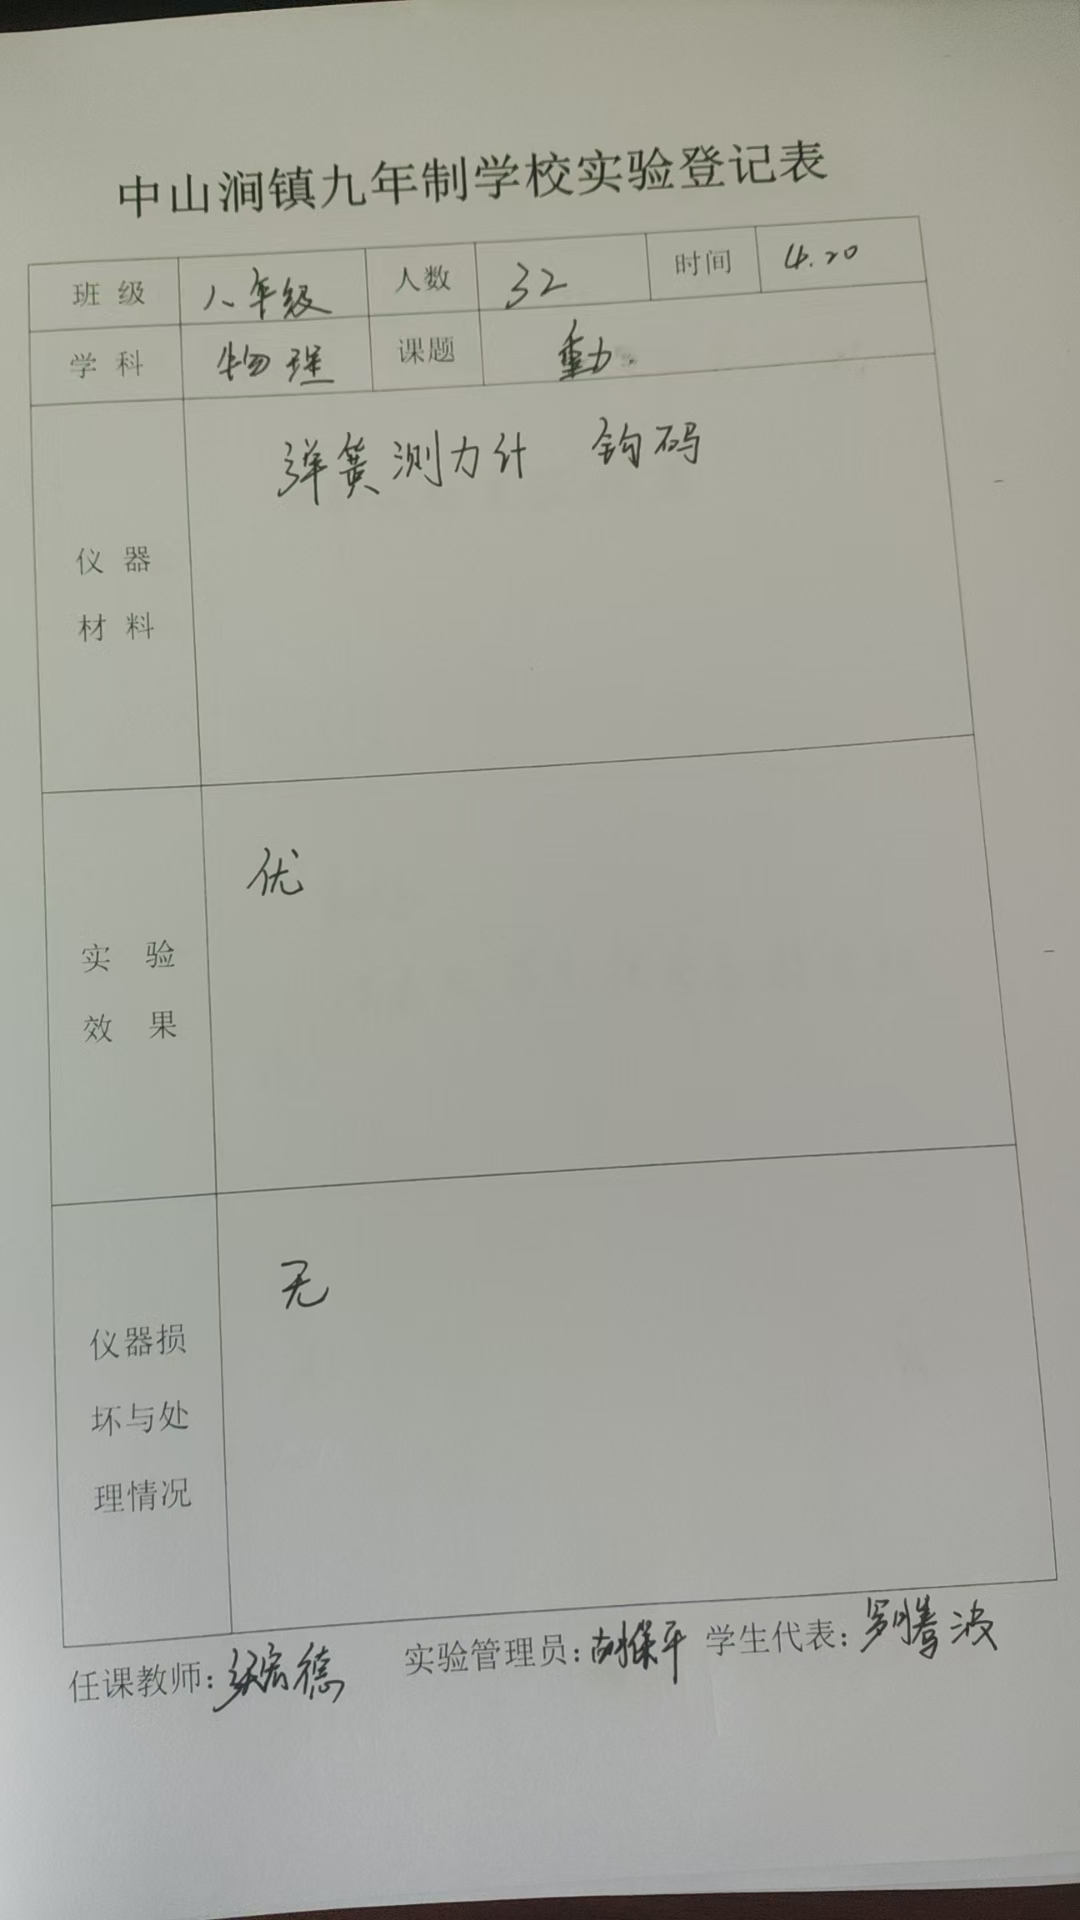 中山涧镇九年制学校实验登记表
班 级 八年级 人数 32 时间 4.20
学 科 物理 课题 重力.
仪 器 弹簧测力计 钩码
材 料
实 验 优
效 果
仪器损 无
坏与处
理情况
任课教师: 张宏德 实验管理员: 胡保平 学生代表: 罗腾波